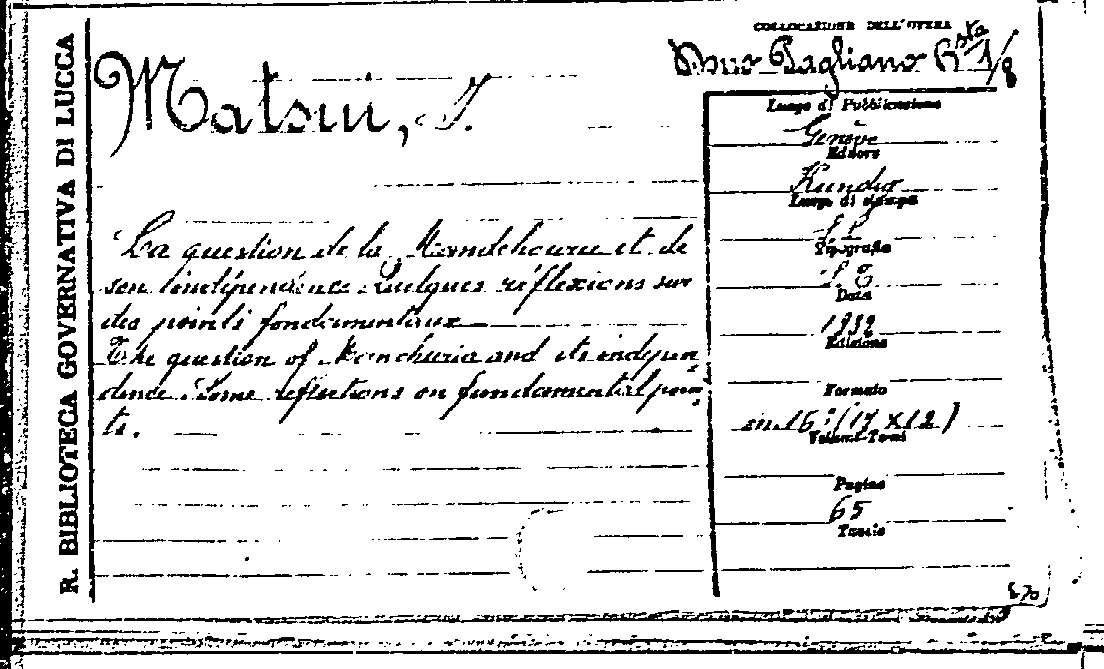 R. BIBLIOTECA GOVERNATIVA DI LUCCA
COLLOCAZIONE DELL'OPERA
Dono Pagliano Bsta 1/8
Matsui, J.
La question de la Mandchourie et de
son indépendence. Quelques réflexions sur
des points fondamentaux
The question of Manchuria and its indepen
dence. Some reflections on fundamental poin
ts.
Luogo di Pubblicazione
Genève
Editore
Kundig
Luogo di stampa
S. L.
Tipografia
S. T.
Data
1932
Edizione
Formato
in 16º (17 x 12)
Volumi-Tomi
Pagine
65
Tavole